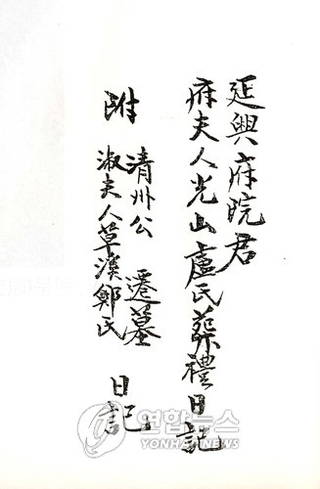 延興府院君
府夫人光山盧氏葬禮日記
附 清州公 遷墓 日記
淑夫人草溪鄭氏
연합뉴스
YONHAPNEWS